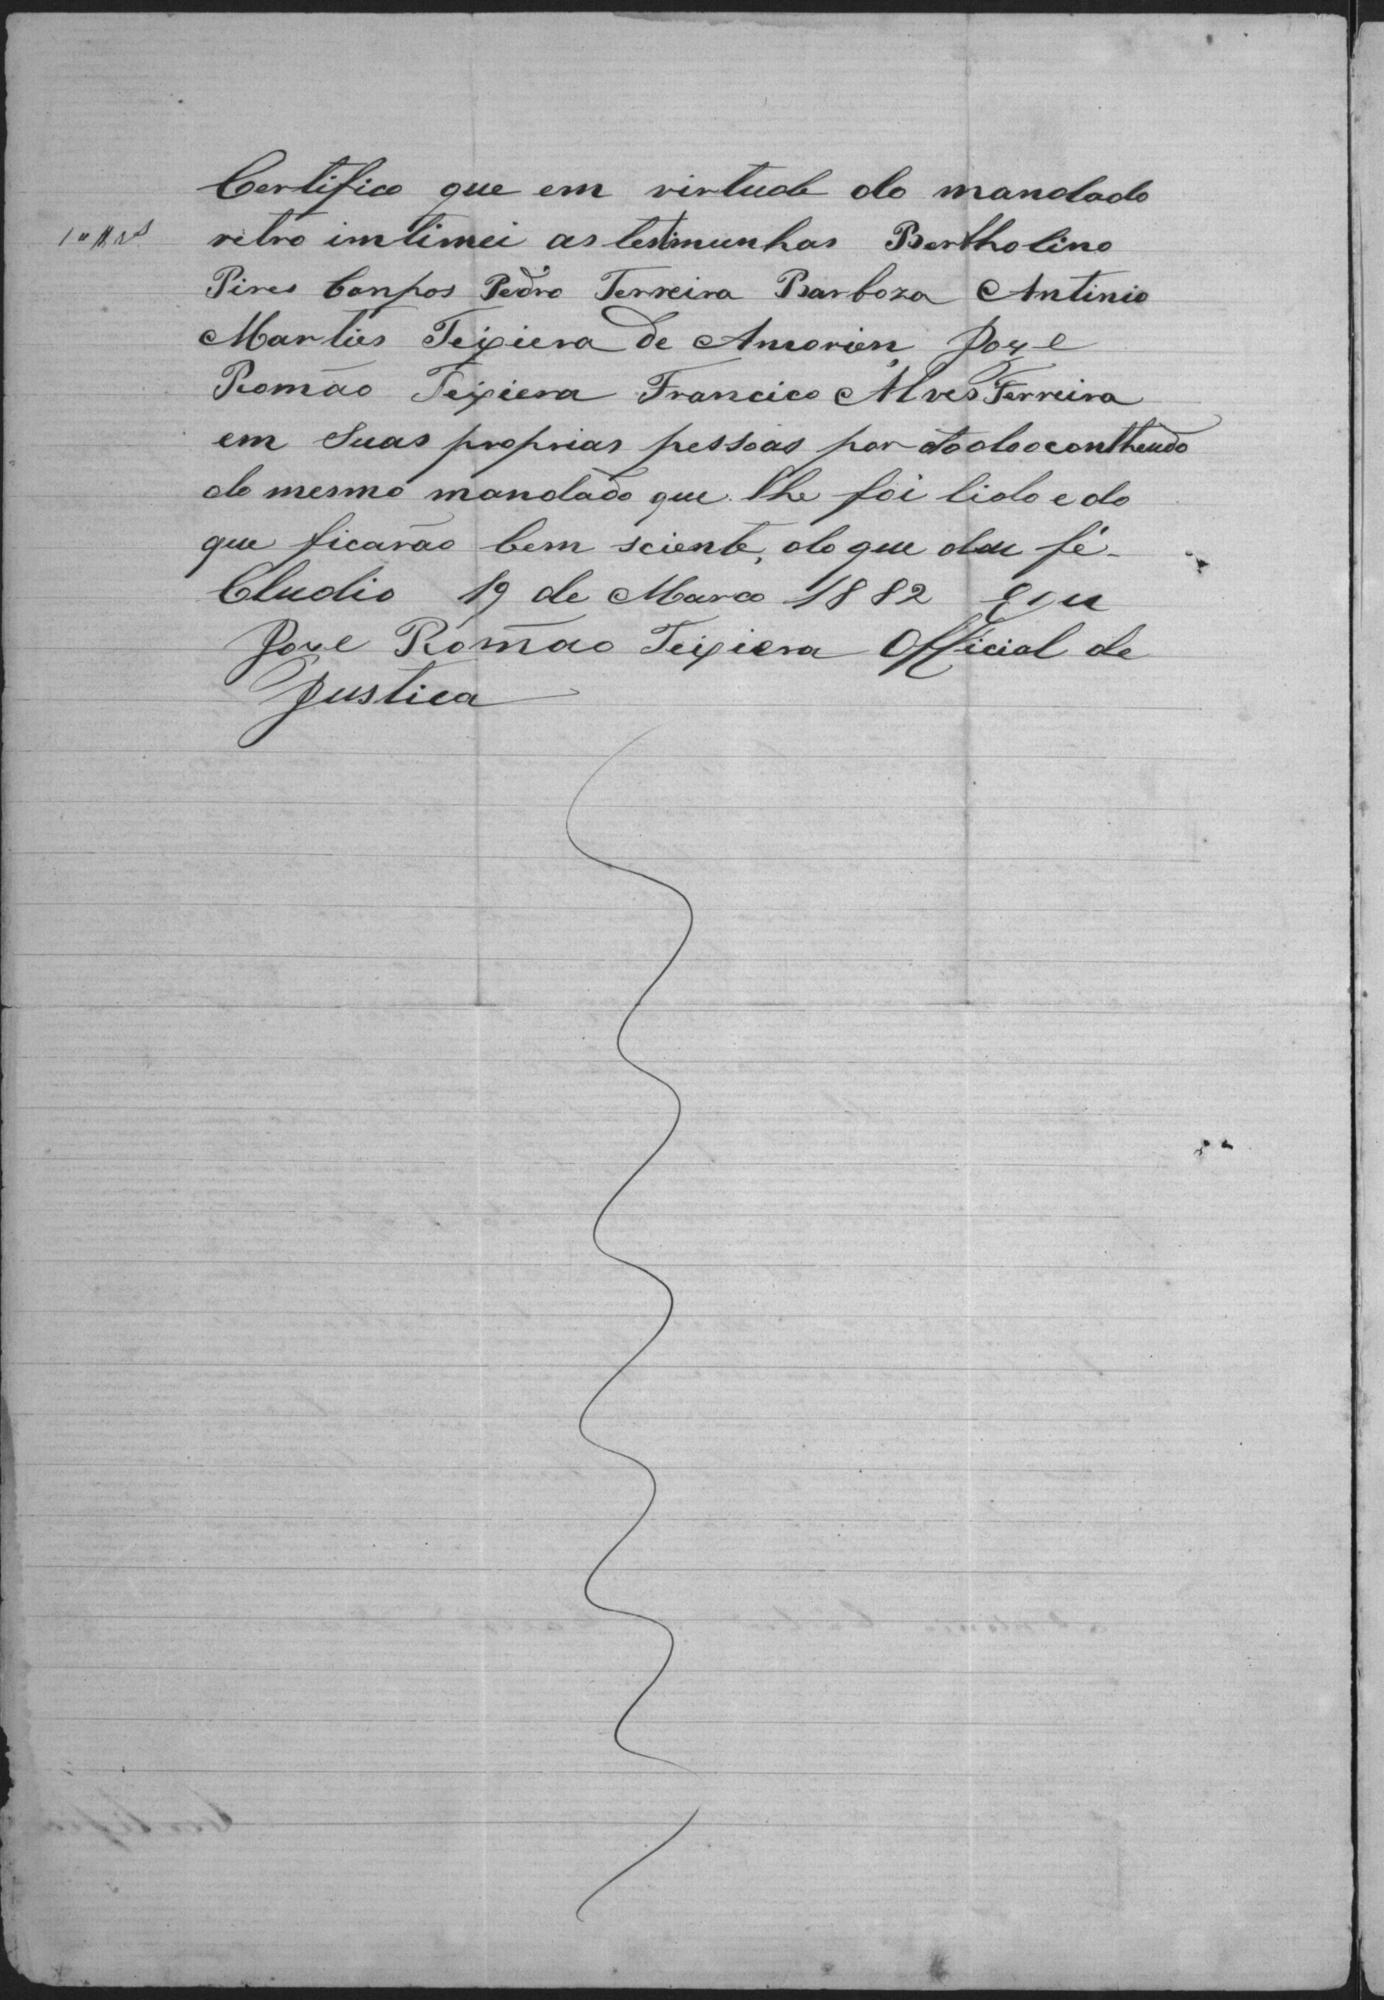 Certifico que em virtude do mandado
retro imtimei as testimunhas Bertholino
Pires Canpos Pedro Ferreira Barboza Antinio
Marties Teixiera de Amorien Joze
Romão Teixiera Francico Alves Ferreira
em Suas proprias pessoas por todo o contheudo
do mesmo mandado que lhe foi lido e do
que ficarão bem sciente, do que dou fé
Cludio 19 de Marco 1882 Eu
Joze Romão Teixiera Official de
Justica